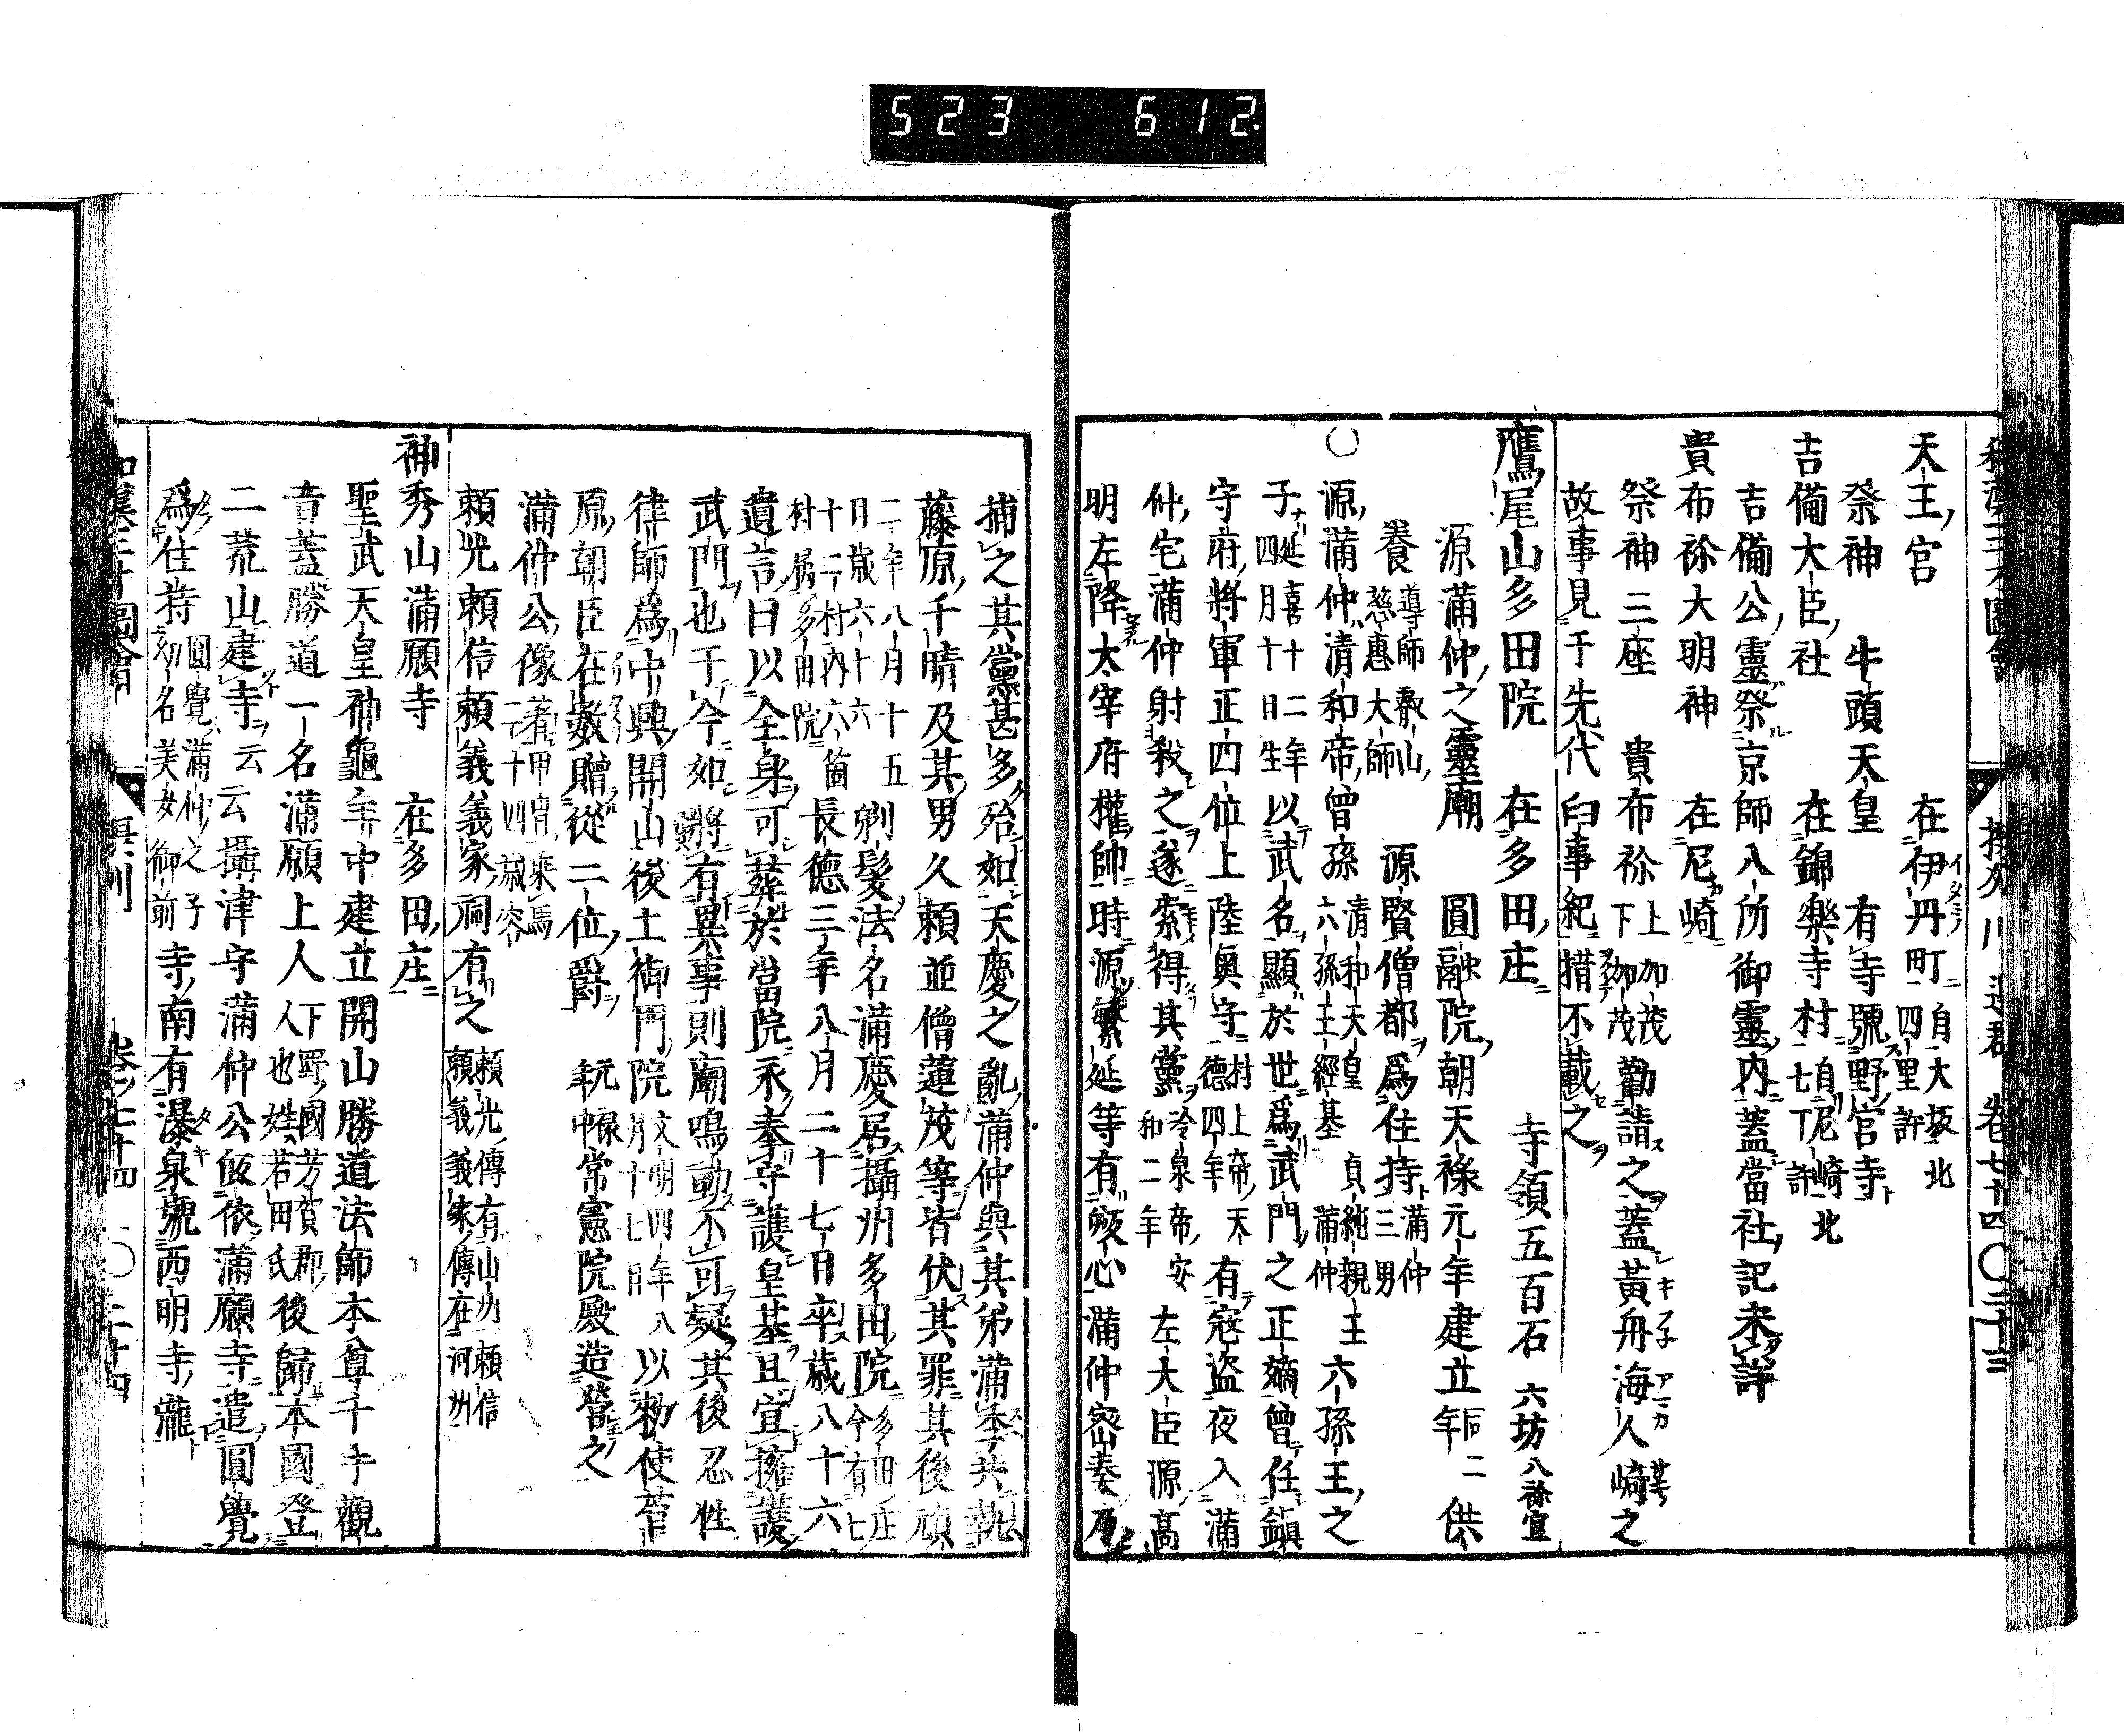 523 612
天王宮 在伊丹町 自大坂北四里許
祭神 牛頭天皇 有寺號野宮寺
吉備大臣社 在錦樂寺村 自尼崎北七丁許
吉備公靈祭京師八所御靈內蓋當社記未詳
貴布祢大明神 在尼崎
祭神三座 貴布祢 上加茂下加茂 勸請之蓋黃舟海人崎之
故事見于先代旧事紀措不載之
鷹尾山多田院 在多田庄 寺領五百石 六坊 八祢宜
源滿仲之靈廟 圓融院朝天祿元年建立 同二年 供
養 導師叡山慈惠大師 源賢僧都爲住持 滿仲三男
〇源滿仲清和帝曾孫 清和天皇 貞純親王 六孫王經基 滿仲 六孫王之
子 延喜十二年四月十日生 以武名顯於世爲武門之正嫡曾任鎮
守府將軍正四位上陸奥守 村上帝天德四年 有寇盜夜入滿
仲宅滿仲射殺之遂索得其黨 冷泉帝安和二年 左大臣源高
明左降太宰府權帥時源繁延等有叛心滿仲密奏乃
捕之其黨甚多殆如天慶之亂滿仲與其弟滿季共執
藤原千晴及其男久賴並僧蓮茂等皆伏其罪其後
二年八月十五月歲六十六 剃髮法名滿慶居攝州多田院 多田庄今有七
十二村內六箇村屬多田院 長德三年八月二十七日卒歲八十六
遺言曰以全身可葬於當院永奉守護皇基且宜擁護
武門也于今如將有異事則廟鳴動不可疑其後忍性
律師爲中興開山後土御門院 文明四年八月十七日 以勅使菅
原朝臣在數贈從二位爵 元祿年中 常憲院殿造營之
滿仲公像 著甲冑乘馬二十四歲容
賴光賴信賴義義家祠有之 賴光傳有山州賴信賴義義家傳在河州
神秀山滿願寺 在多田庄
聖武天皇神龜年中建立開山勝道法師本尊千手觀
音蓋勝道一名滿願上人 下野國芳賀郡人也姓若田氏 後歸本國登
二荒山建寺云云攝津守滿仲公皈依滿願寺遣圓覺
爲住持 圓覺滿仲之子幼名美女御前 寺南有瀑泉號西明寺瀧